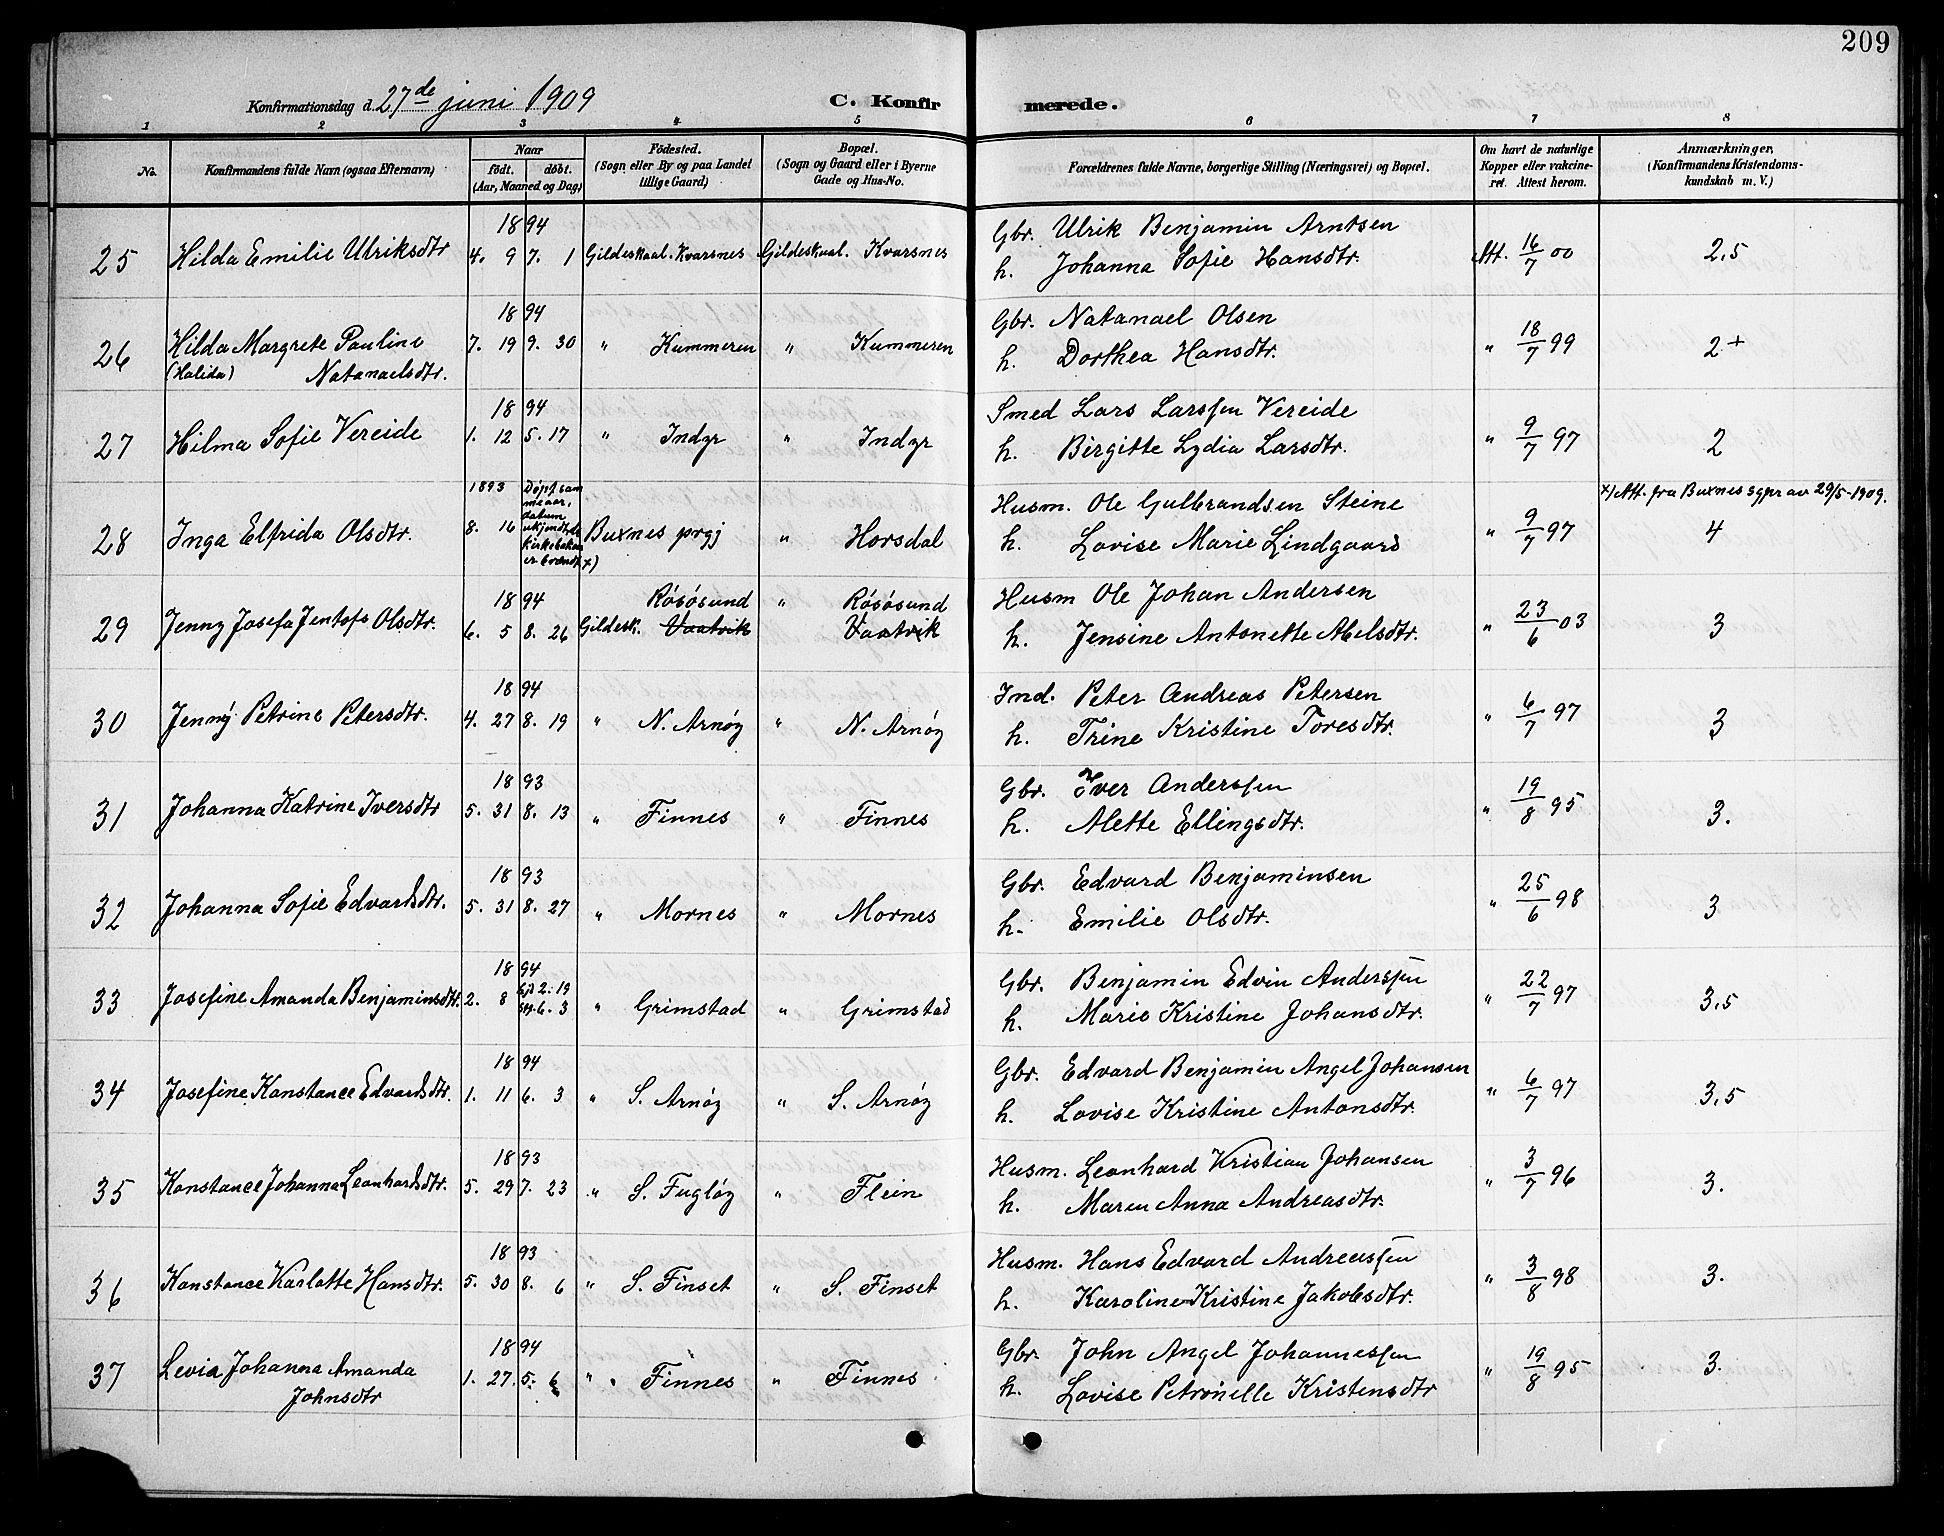 209
Konfirmationsdag d. 27de juni 1909 C. Konfirmerede.
1 2 3 4 5 6 7 8
No. Konfirmandens fulde Navn (ogsaa Efternavn) Naar født. døbt. (Aar, Maaned og Dag) Födested. (Sogn eller By og paa Landet tillige Gaard) Bopæl. (Sogn og Gaard eller i Byerne Gade og Hus-No. Forældrenes fulde Navne, borgerlige Stilling (Næringsvei) og Bopæl. Om havt de naturlige Kopper eller vakcineret. Attest herom. Anmærkninger, (Konfirmandens Kristendomskundskab m. V.)
1894 Gbr. Ulrik Benjamin Arntsen
25 Hilda Emilie Ulriksdtr 4. 9 7. 1 Gildeskaal. Kvarsnes Gildeskaal. Kvarsnes h. Johanna Sofie Hansdtr. Att. 16/7 00 2,5
1894 Gbr. Natanael Olsen
26 Hilda Margrete Pauline 7. 19 9. 30 " Kummeren " Kummeren h. Dorthea Hansdtr. " 18/7 99 2+
(Halida) Natanaelsdtr.
1894 Smed Lars Larssen Vereide
27 Hilma Sofie Vereide 1. 12 5. 17 " Indyr " Indyr h. Birgitte Lydia Larsdtr. " 9/7 97 2
1893 Døpt samme aar, datum ukjendt, da kirkeboken er brændt x) Husm. Ole Gulbrandsen Steine x) Att. fra Buxnes sgpr av 29/5-1909.
28 Inga Elfrida Olsdtr. 8. 16 Buxnes prgj " Horsdal h. Lovise Marie Lindgaard " 9/7 97 4
1894 Røsøsund " Røsøsund Husm Ole Johan Andersen
29 Jenny Josefa Jentofs Olsdtr. 6. 5 8. 26 Gildesk. Vaatvik Vaatvik h. Jensine Antonette Abelsdtr. " 23/6 03 3
1894 Ind. Peter Andreas Petersen
30 Jenny Petrine Petersdtr. 4. 27 8. 19 " N. Arnøy " N. Arnøy h. Trine Kristine Toresdtr. " 6/7 97 3
1893 Gbr. Iver Anderssen
31 Johanna Katrine Iversdtr 5. 31 8. 13 " Finnes " Finnes h. Alette Ellingsdtr. " 19/8 95 3.
1893 Gbr. Edvard Benjaminsen
32 Johanna Sofie Edvardsdtr. 5. 31 8. 27 " Mornes " Mornes h. Emilie Olsdtr. " 25/6 98 3
1894 Gbr. Benjamin Edvin Anderssen
33 Josefine Amanda Benjaminsdtr. 2. 8 2. 19 6. 3 " Grimstad " Grimstad h. Marie Kristine Johansdtr. " 22/7 97 3,5
1894 Gbr. Edvard Benjamin Angel Johansen
34 Josefine Konstance Edvardsdtr. 1. 11 6. 3 " S. Arnøy " S. Arnøy h. Lovise Kristine Antonsdtr. " 6/7 97 3,5
1893 Husm. Leonhard Kristian Johansen
35 Konstance Johanna Leonhardsdtr. 5. 29 7. 23 " S. Fugløy " Flein h. Maren Anna Andreasdtr. " 3/7 96 3.
1893 Husm. Hans Edvard Andreassen
36 Konstance Karlotte Hansdtr. 5. 30 8. 6 " S. Finset " S. Finset h. Karoline Kristine Jakobsdtr. " 3/8 98 3.
1894 Gbr. John Angel Johannessen
37 Levia Johanna Amanda 1. 27. 5. 6 " Finnes " Finnes h. Lovise Petronelle Kristensdtr " 19/8 95 3.
Johnsdtr